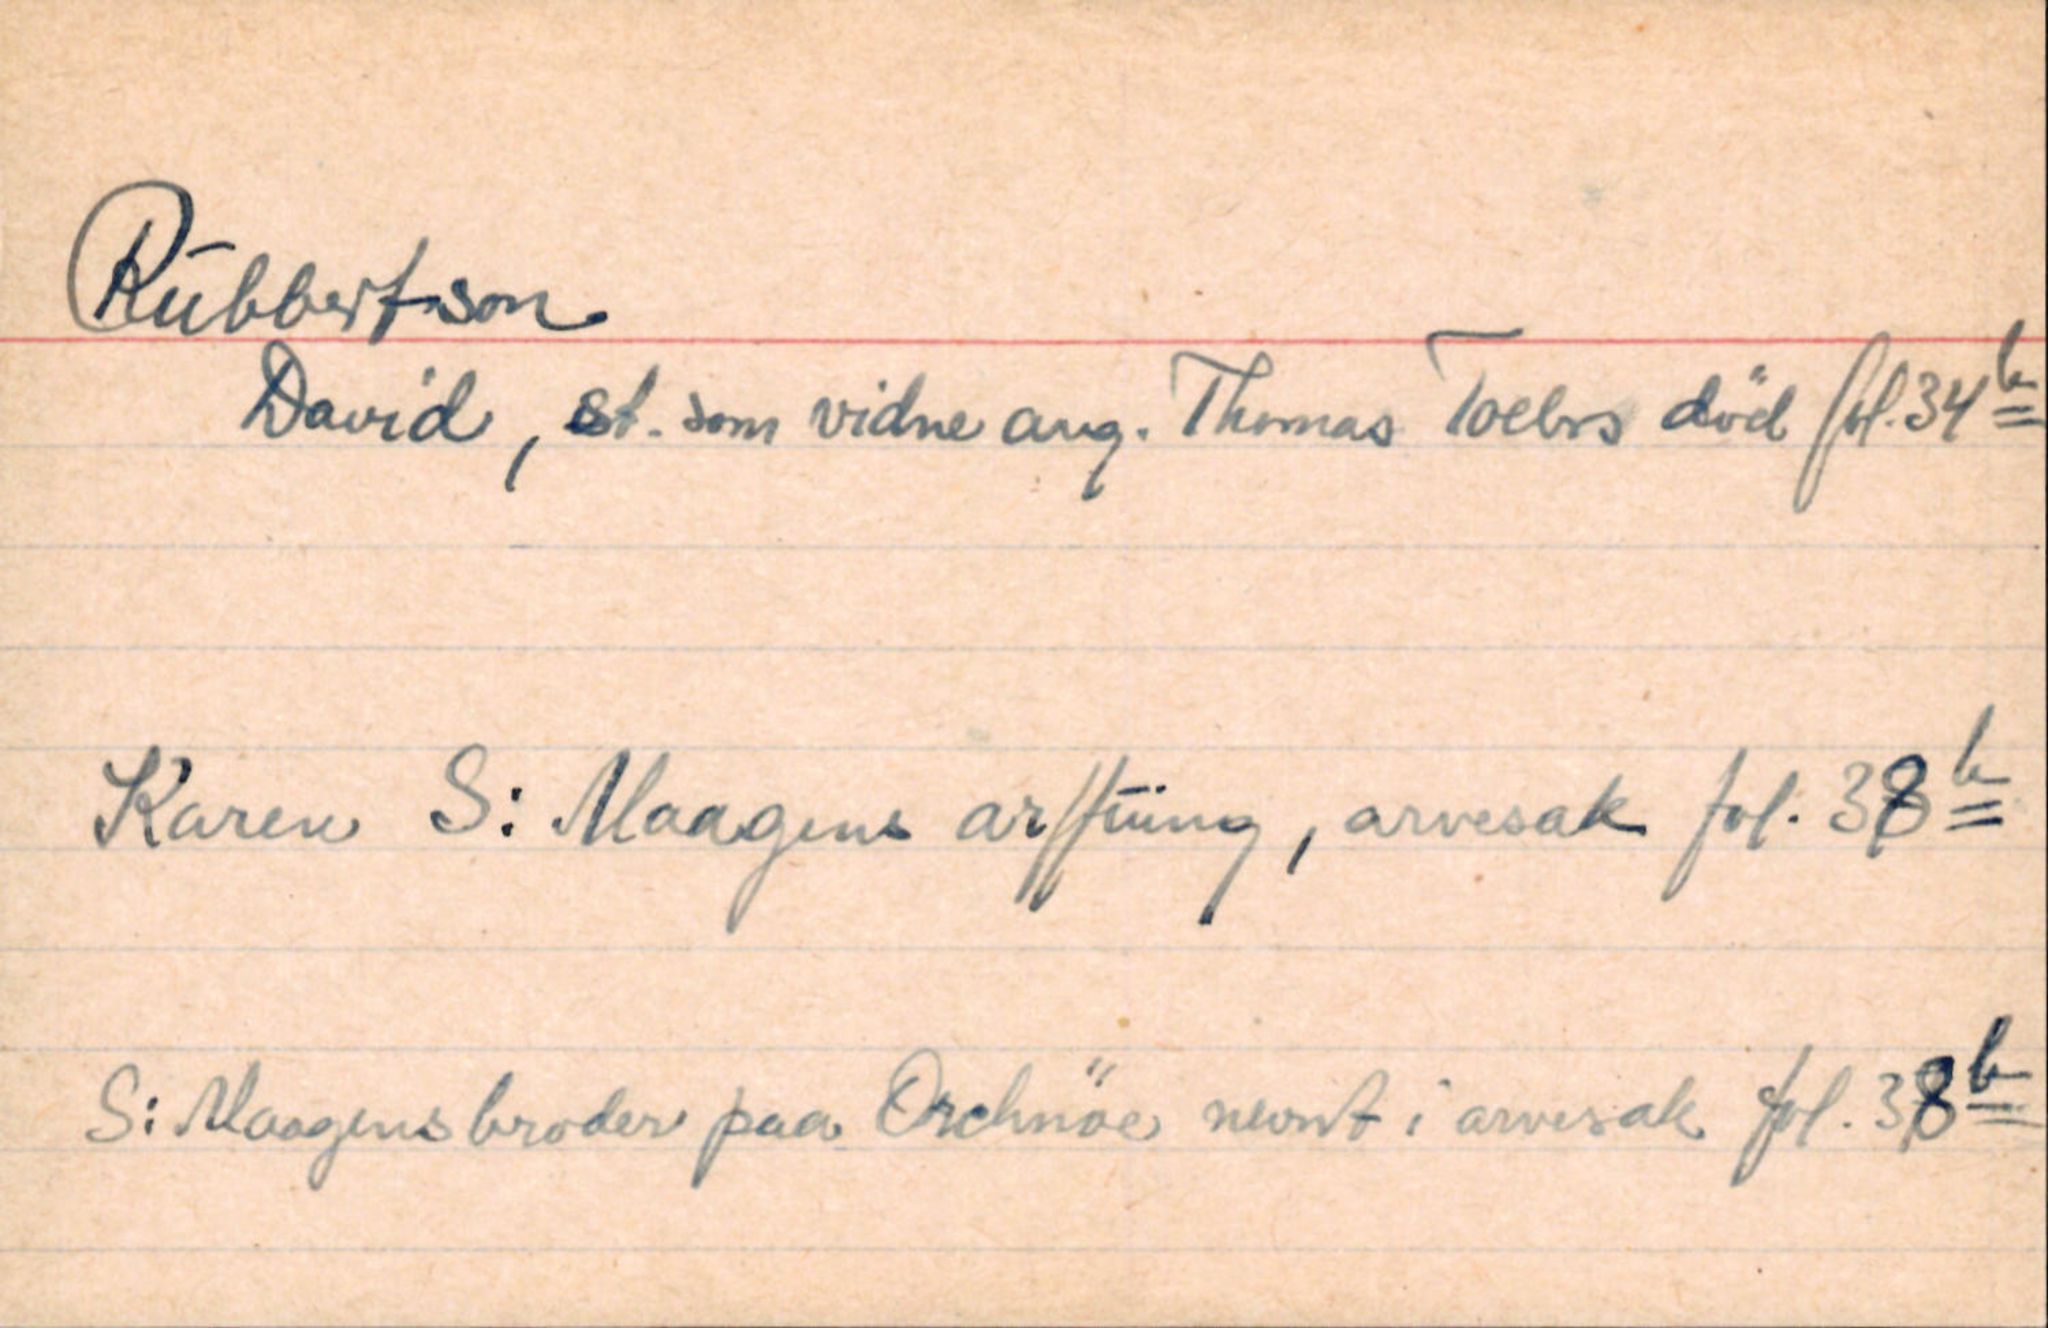 Rubbertson
David, st. som vidne ang. Thomas Toelvs död fol. 34b
Karen S: Maagens arffüing, arvesak fol. 38b
S: Maagens broder paa Orchnöe nevnt i arvesak fol. 38b